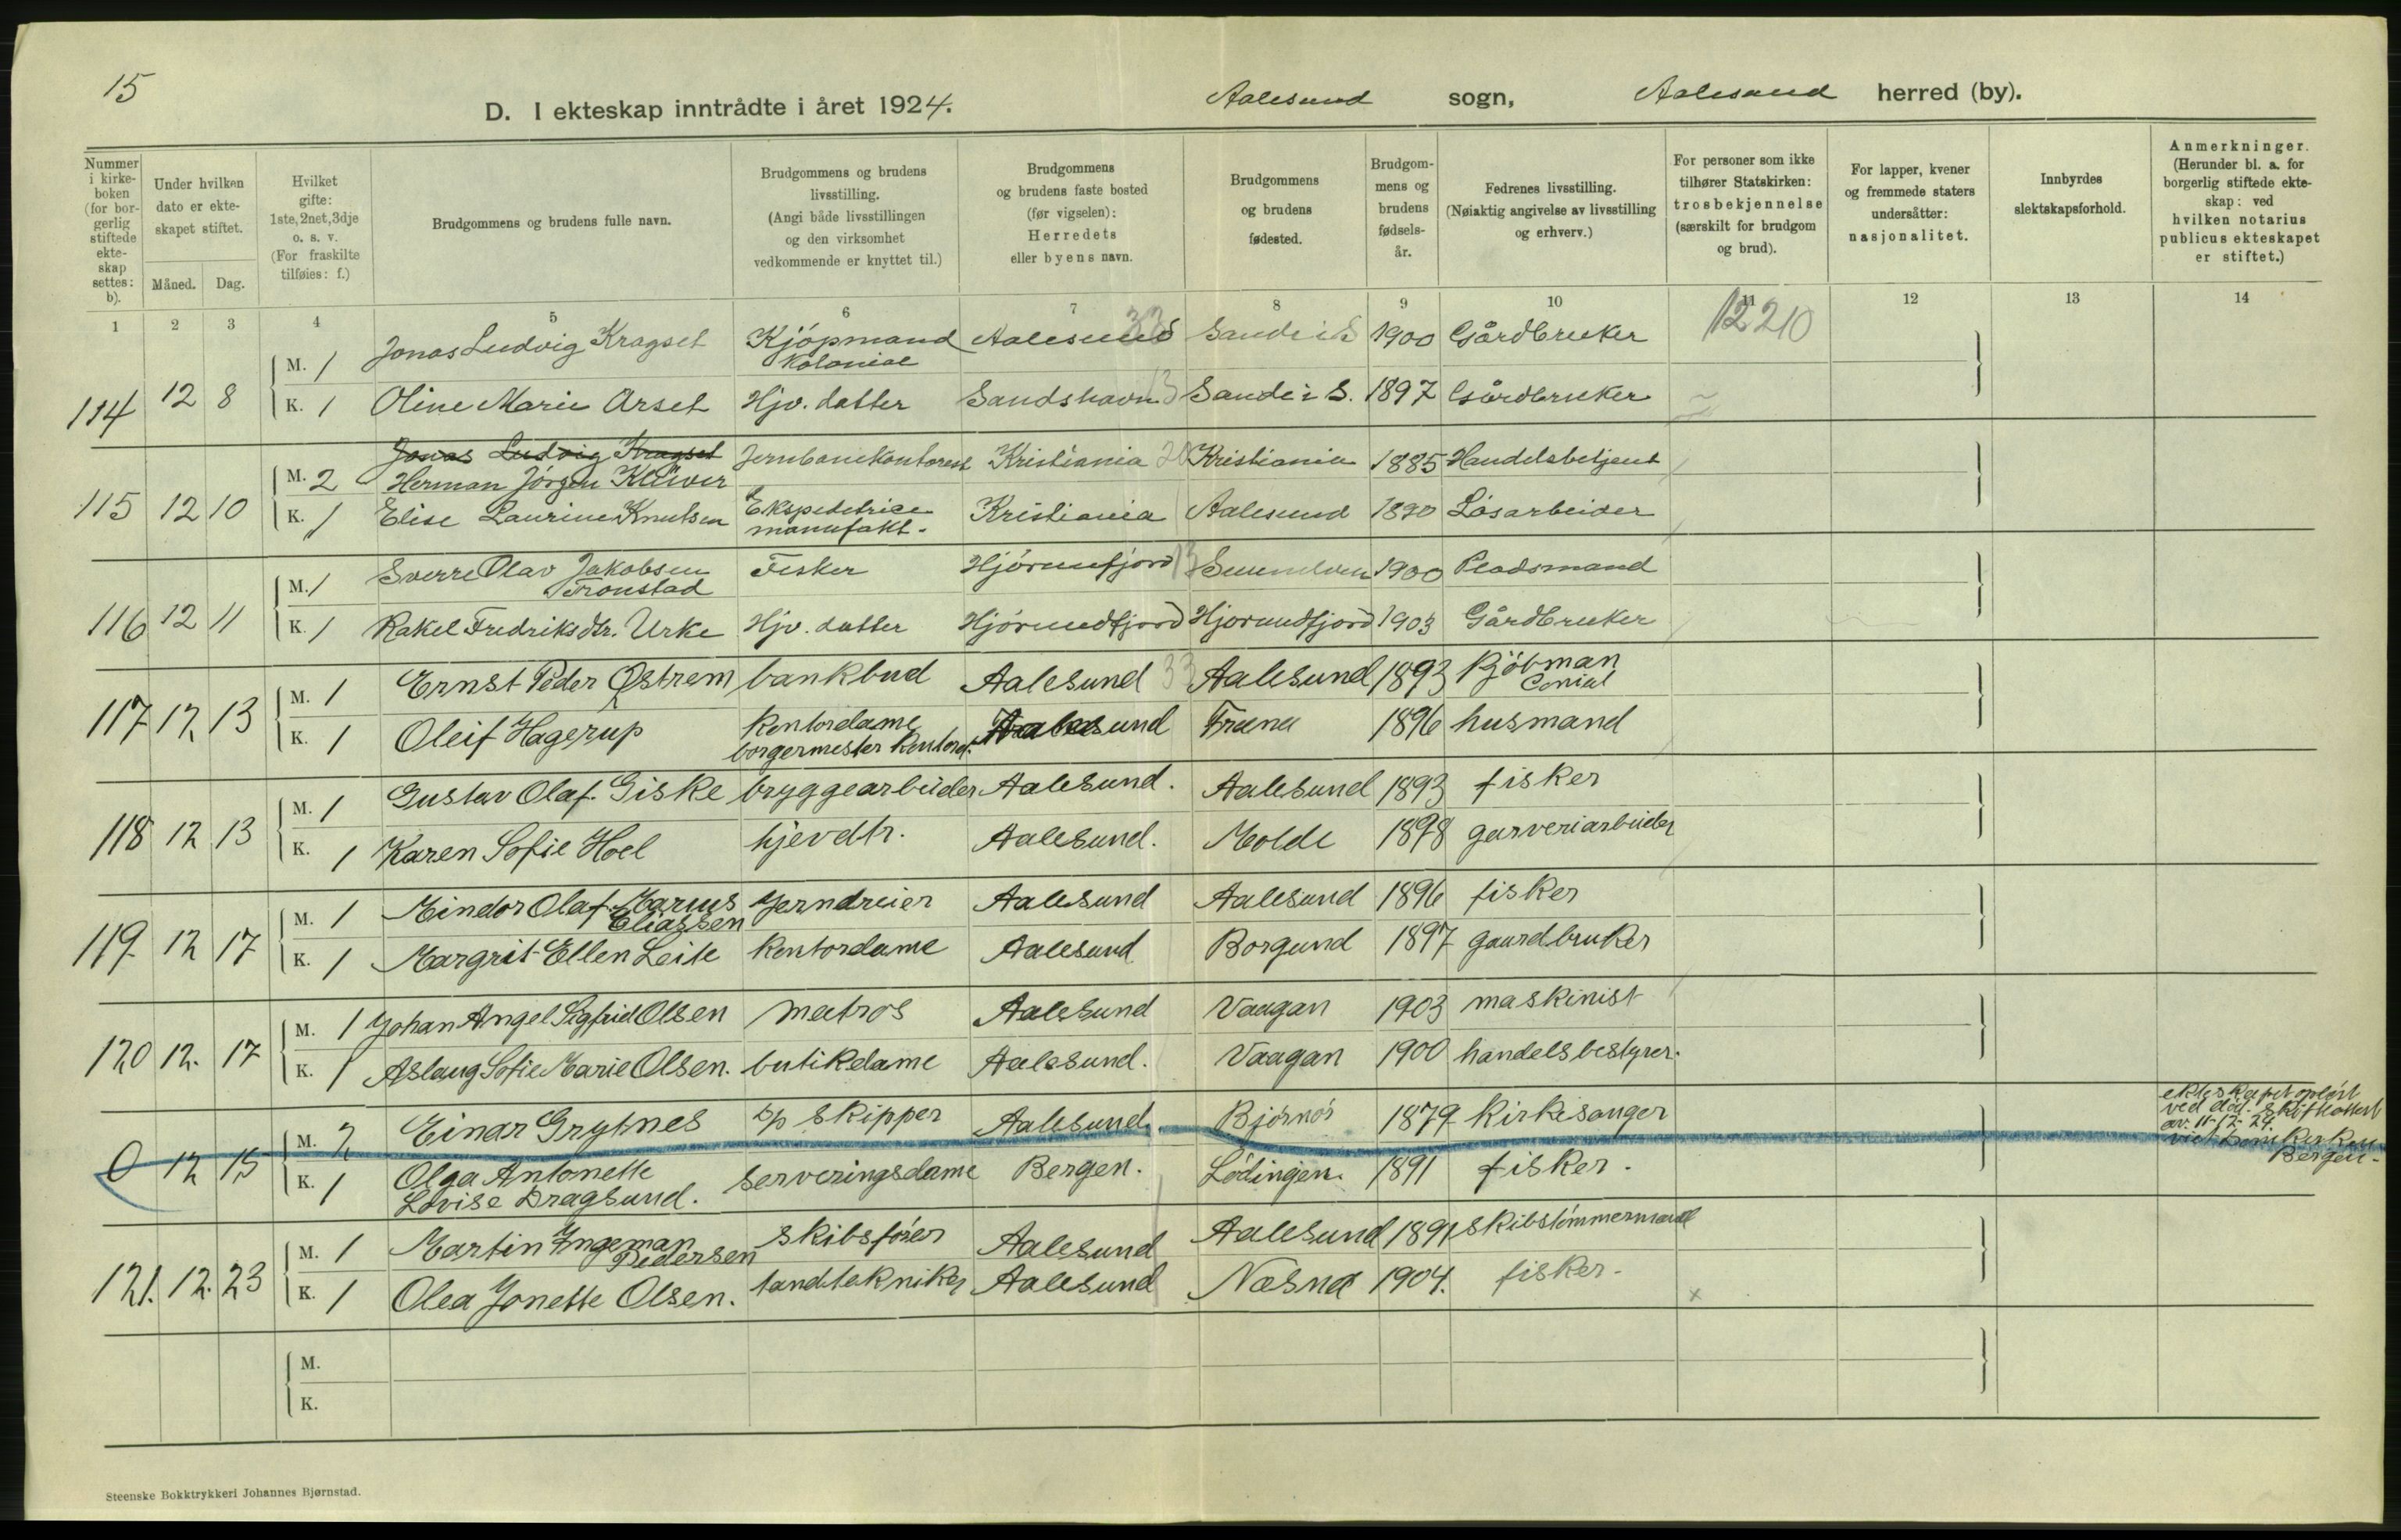 15
D. I ekteskap inntrådte i året 1924. Aalesund sogn, Aalesund herred (by).
Nummer i kirkeboken (for borgerlig stiftede ekteskap settes: b).
Under hvilken dato er ekteskapet stiftet.
Måned. Dag.
Hvilket gifte: 1ste, 2net, 3dje o. s. v. (For fraskilte tilføies: f.)
Brudgommens og brudens fulle navn.
Brudgommens og brudens livsstilling. (Angi både livsstillingen og den virksomhet vedkommende er knyttet til.)
Brudgommens og brudens faste bosted (før vigselen): Herredets eller byens navn.
Brudgommens og brudens fødested.
Brudgommens og brudens fødselsår.
Fedrenes livsstilling. (Nøiaktig angivelse av livsstilling og erhverv.)
For personer som ikke tilhører Statskirken: trosbekjennelse (særskilt for brudgom og brud).
For lapper, kvener og fremmede staters undersåtter: nasjonalitet.
Innbyrdes slektskapsforhold.
Anmerkninger. (Herunder bl. a. for borgerlig stiftede ekteskap: ved hvilken notarius publicus ekteskapet er stiftet.)
1 2 3 4 5 6 7 8 9 10 11 12 13 14
M. 1 Jonas Ludvig Kragset Kjöpmand Kolonial Aalesund 33 Sande i S 1900 Gårdbruker 1220
114 12 8 K. 1 Oline Marie Arset Hjv. datter Sandshavn 13 Sande i S. 1897 Gårdbruker
Jonas Ludvig Kragset
M. 2 Herman Jörgen Klüwer Jernbanekontorist Kristiania 20 Kristiania 1885 Handelsbetjent
115 12 10 K. 1 Elise Laurine Knutsen Ekspeditrice manufakt. Kristiania Aalesund 1890 Lösarbeider
M. 1 Sverre Olav Jakobsen Tronstad Fisker Hjörundfjord 13 1900 Pladsmand
116 12 11 K. 1 Rakel Fredriksdtr. Urke Hjv. datter Hjörundfjord Hjorundfjord 1903 Gårdbruker
M. 1 Ernst Peder Østrem bankbud Aalesund 33 Aalesund 1893 Kjöbman
117 12 13 K. 1 Oleif Hagerup Kontordame borgermester Kontoret Aalesund Fræna 1896 husmand
M. 1 Gustav Olaf Giske bryggearbeider Aalesund. Aalesund 1893 fisker
118 12 13 K. 1 Karen Sofie Hoel hjevdtr. Aalesund. Molde 1898 garveriarbeider
M. 1 Meindor Olaf Marius Eliassen Jerndreier Aalesund Aalesund 1896 fisker
119 12 17 K. 1 Margrit Ellen Leite Kontordame Aalesund Borgund 1897 gaardbruker
M. 1 Johan Angel Sigfrid Olsen matros Aalesund Vaagan 1903 maskinist
120 12. 17 K. 1 Aslaug Sofie Marie Olsen. butikdame Aalesund. Vaagan 1900 handelsbestyrer.
M. 2 Einar Grytnes skipper Aalesund. Bjørnør 1879 Kirkesanger ekteskapet opløst ved død. Skifteattest av. 11-12-24. viet Domkirken Bergen.
0 12 15 K. 1 Olga Antonette Lovise Dragsund. Serveringsdame Bergen. Lödingen. 1891 fisker.
M. 1 Martin Ingeman Pedersen skibsförer Aalesund Aalesund 1891 skibstömmermand
121. 12. 23 K. 1 Olea Jonette Olsen. tandtekniker Aalesund Næsna 1904. fisker. x
M.
K.
Steenske Bokktrykkeri Johannes Bjørnstad.